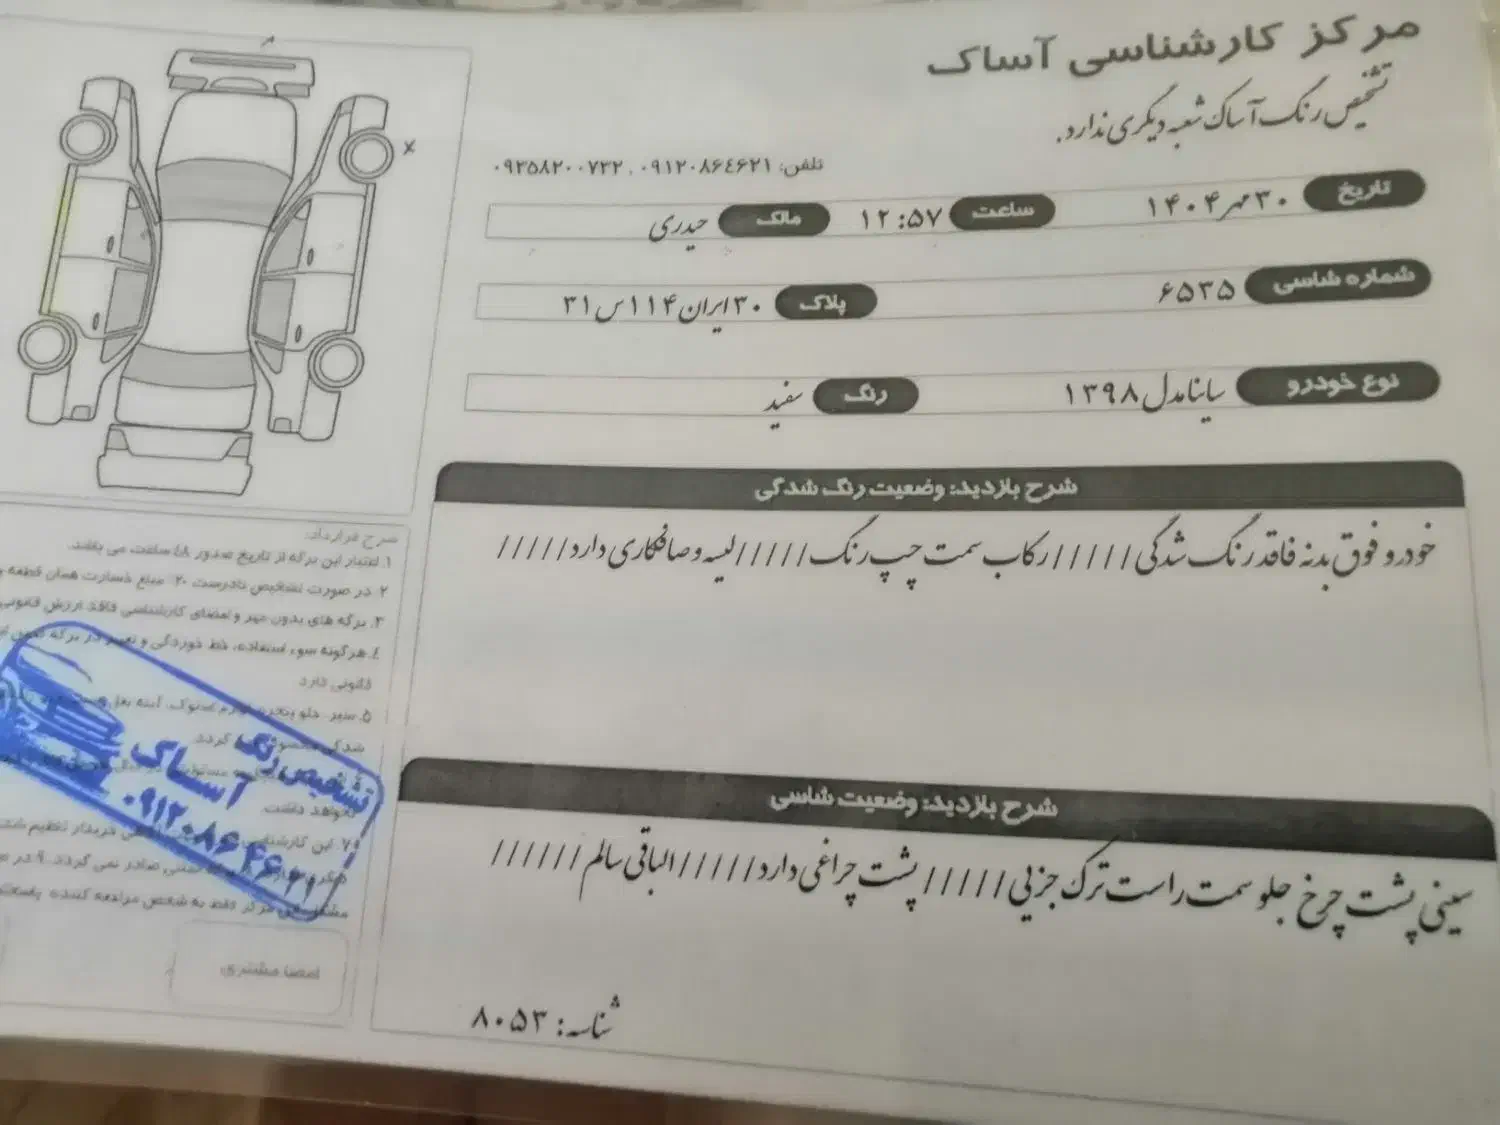 مرکز کارشناسی آساک
تشخیص رنگ آساک شعبه دیگری ندارد.
تلفن: ۰۹۱۲۰۸۶۴۶۲۱ , ۰۹۳۵۸۲۰۰۷۳۲
تاریخ ۳۰ مهر ۱۴۰۴ ساعت ۱۲:۵۷ مالک حیدری
شماره شاسی ۶۵۳۵ پلاک ۳۰ ایران ۱۱۴ س ۳۱
نوع خودرو ساینا مدل ۱۳۹۸ رنگ سفید
شرح بازدید: وضعیت رنگ شدگی
خودرو فوق بدنه فاقد رنگ شدگی ///// رکاب سمت چپ رنگ ///// لیسه و صافکاری دارد /////
شرح بازدید: وضعیت شاسی
سینی پشت چرخ جلو سمت راست ترک جزیی ///// پشت چراغی دارد ///// الباقی سالم //////
شناسه: ۸۰۵۳
شرح قرارداد:
۱. اعتبار این برگه از تاریخ صدور ۴۸ ساعت می باشد.
۲. در صورت تشخیص نادرست ۲۰ مبلغ خسارت همان قطعه
۳. برگه های بدون مهر و امضای کارشناسی فاقد ارزش قانونی
۴. هرگونه سوء استفاده، خط خوردگی و تغییر در برگه
قانونی دارد
۵. سپر، جلو پنجره، آینه بغل
شدگی محسوب گردد.
نخواهد داشت.
۷. این کارشناسی خریدار تنظیم
صادر نمی گردد. ۹. در
مرکز فقط به شخص مراجعه کننده
تشخیص رنگ
آساک
۰۹۱۲۰۸۶۴۶۲۱
امضا مشتری